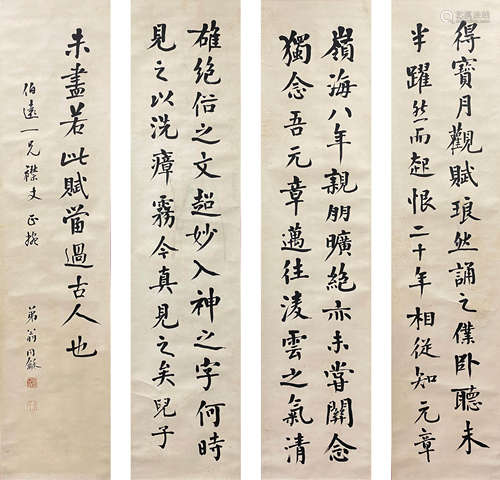 得寶月觀賦琅然誦之僕臥聽未
半躍然而起恨二十年相從知元章
嶺海八年親朋曠絕亦未嘗關念
獨念吾元章邁往淩雲之氣清
雄絕俗之文超妙入神之字何時
見之以洗瘴霧今真見之矣兒子
未盡若此賦當過古人也
伯遠一兄襟丈 正
弟翁同龢